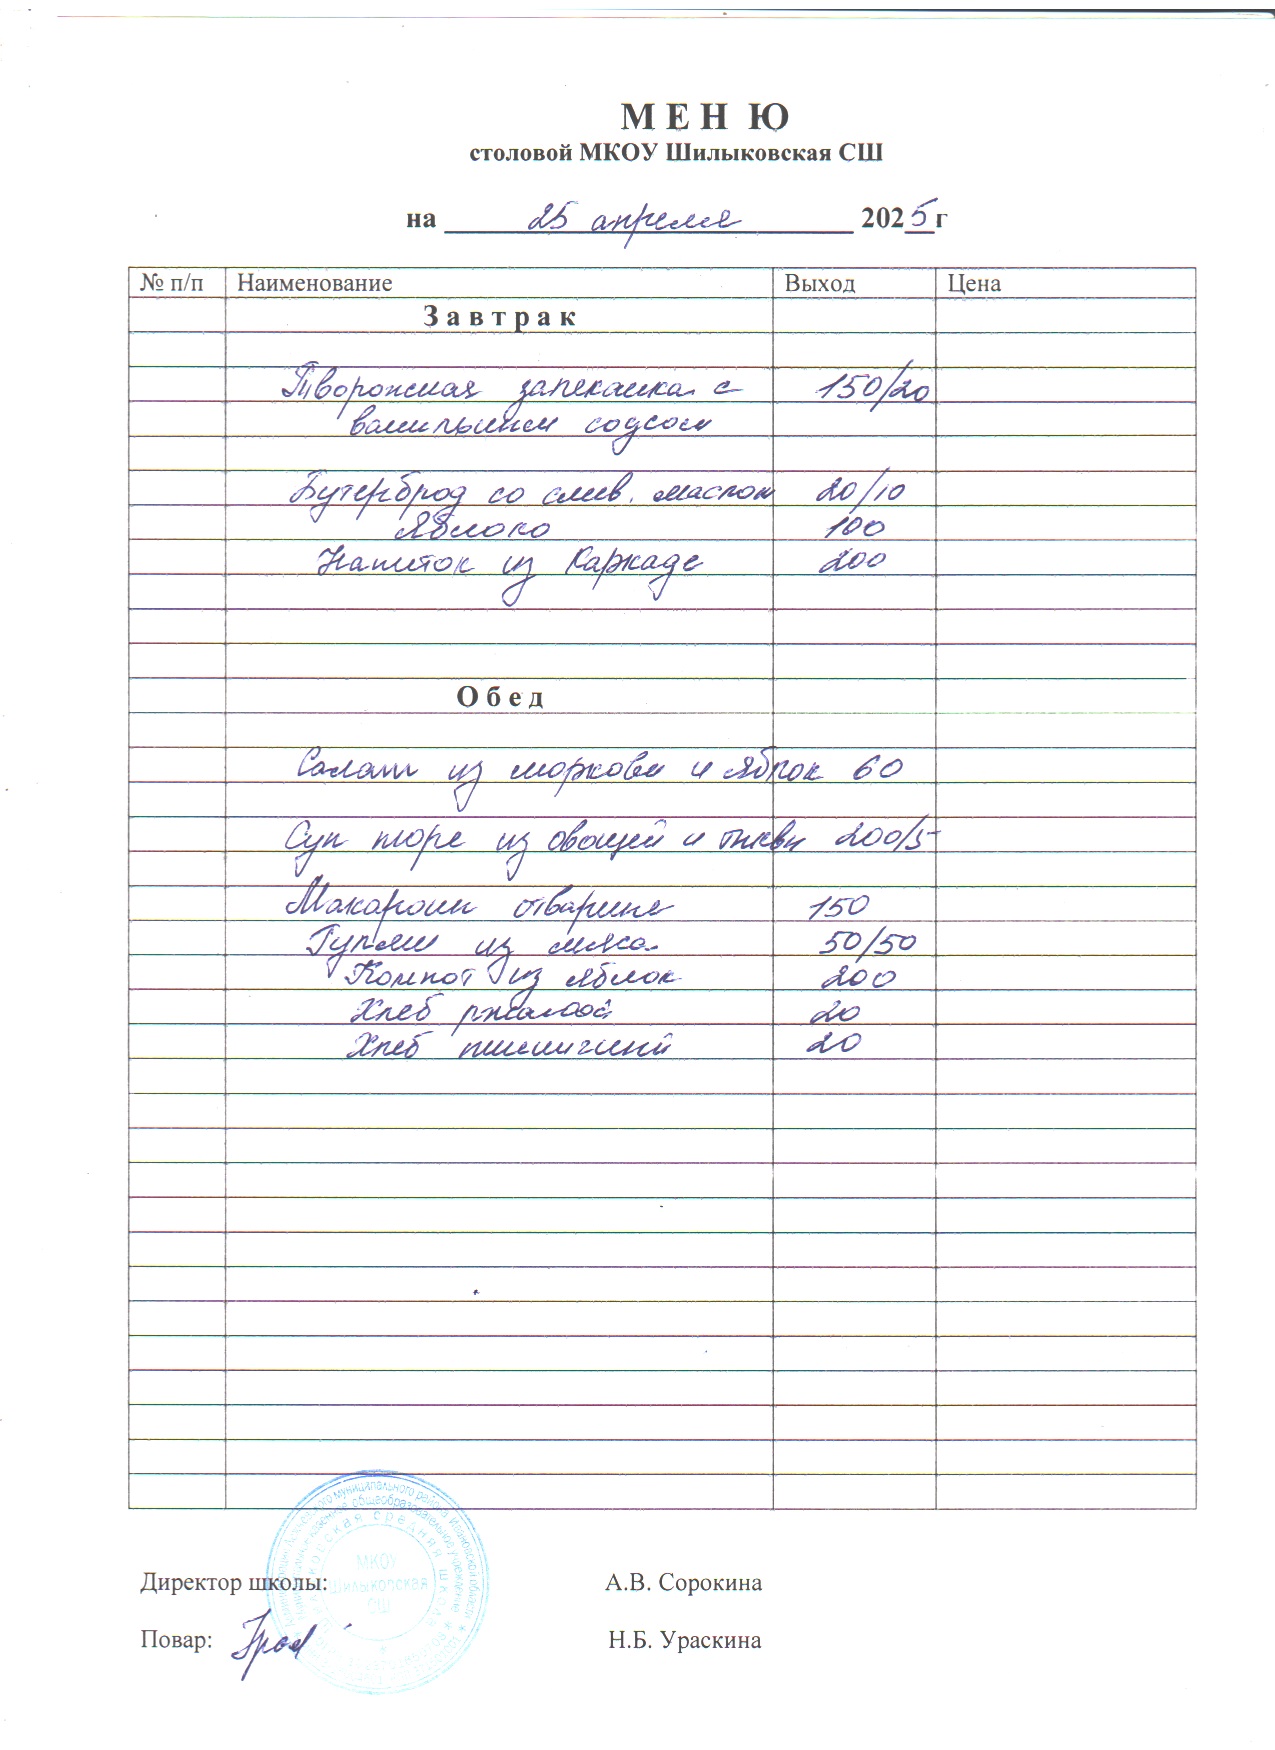 М Е Н Ю
столовой МКОУ Шилыковская СШ
на 25 апреля 2025 г
№ п/п Наименование Выход Цена
З а в т р а к
Творожная запеканка с 150/20
ванильным соусом
Бутерброд со слив. маслом 20/10
Яблоко 100
Напиток из каркаде 200
О б е д
Салат из моркови и яблок 60
Суп пюре из овощей и тыквы 200/5
Макароны отварные 150
Гуляш из мяса 50/50
Компот из яблок 200
Хлеб ржаной 20
Хлеб пшеничный 20
Директор школы: А.В. Сорокина
Повар: Н.Б. Ураскина
МКОУ
Шилыковская
СШ